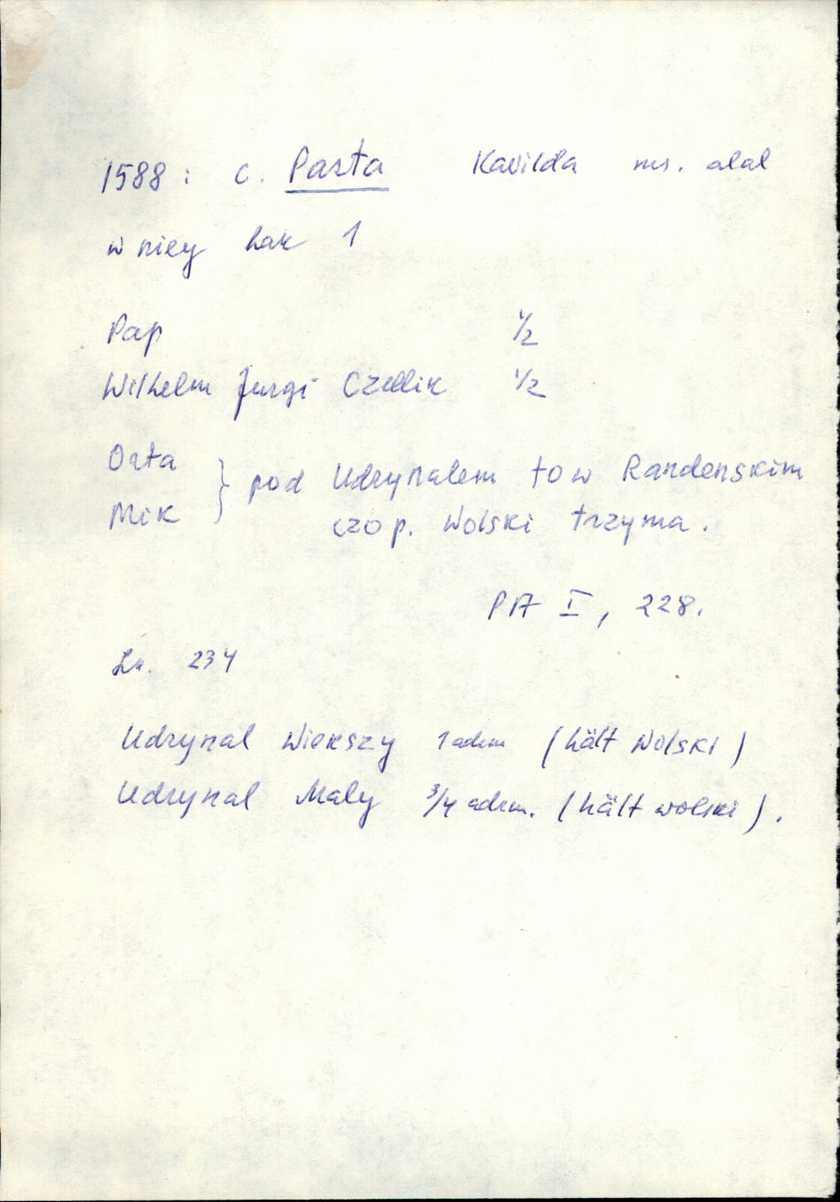 1588: c. Pasta Kavilda ms. alal
w niey hak 1
Pap 1/2
Wilhelm Jurgi Czellik 1/2
Orta
Mik } pod Udrynalem to w Randenskim
czo p. Wolski trzyma.
PA I, 228.
Lk. 234
Udrynal Wiekszy 1 adrm (hält Wolski)
Udrynal Maly 3/4 adrm. (hält Wolski).